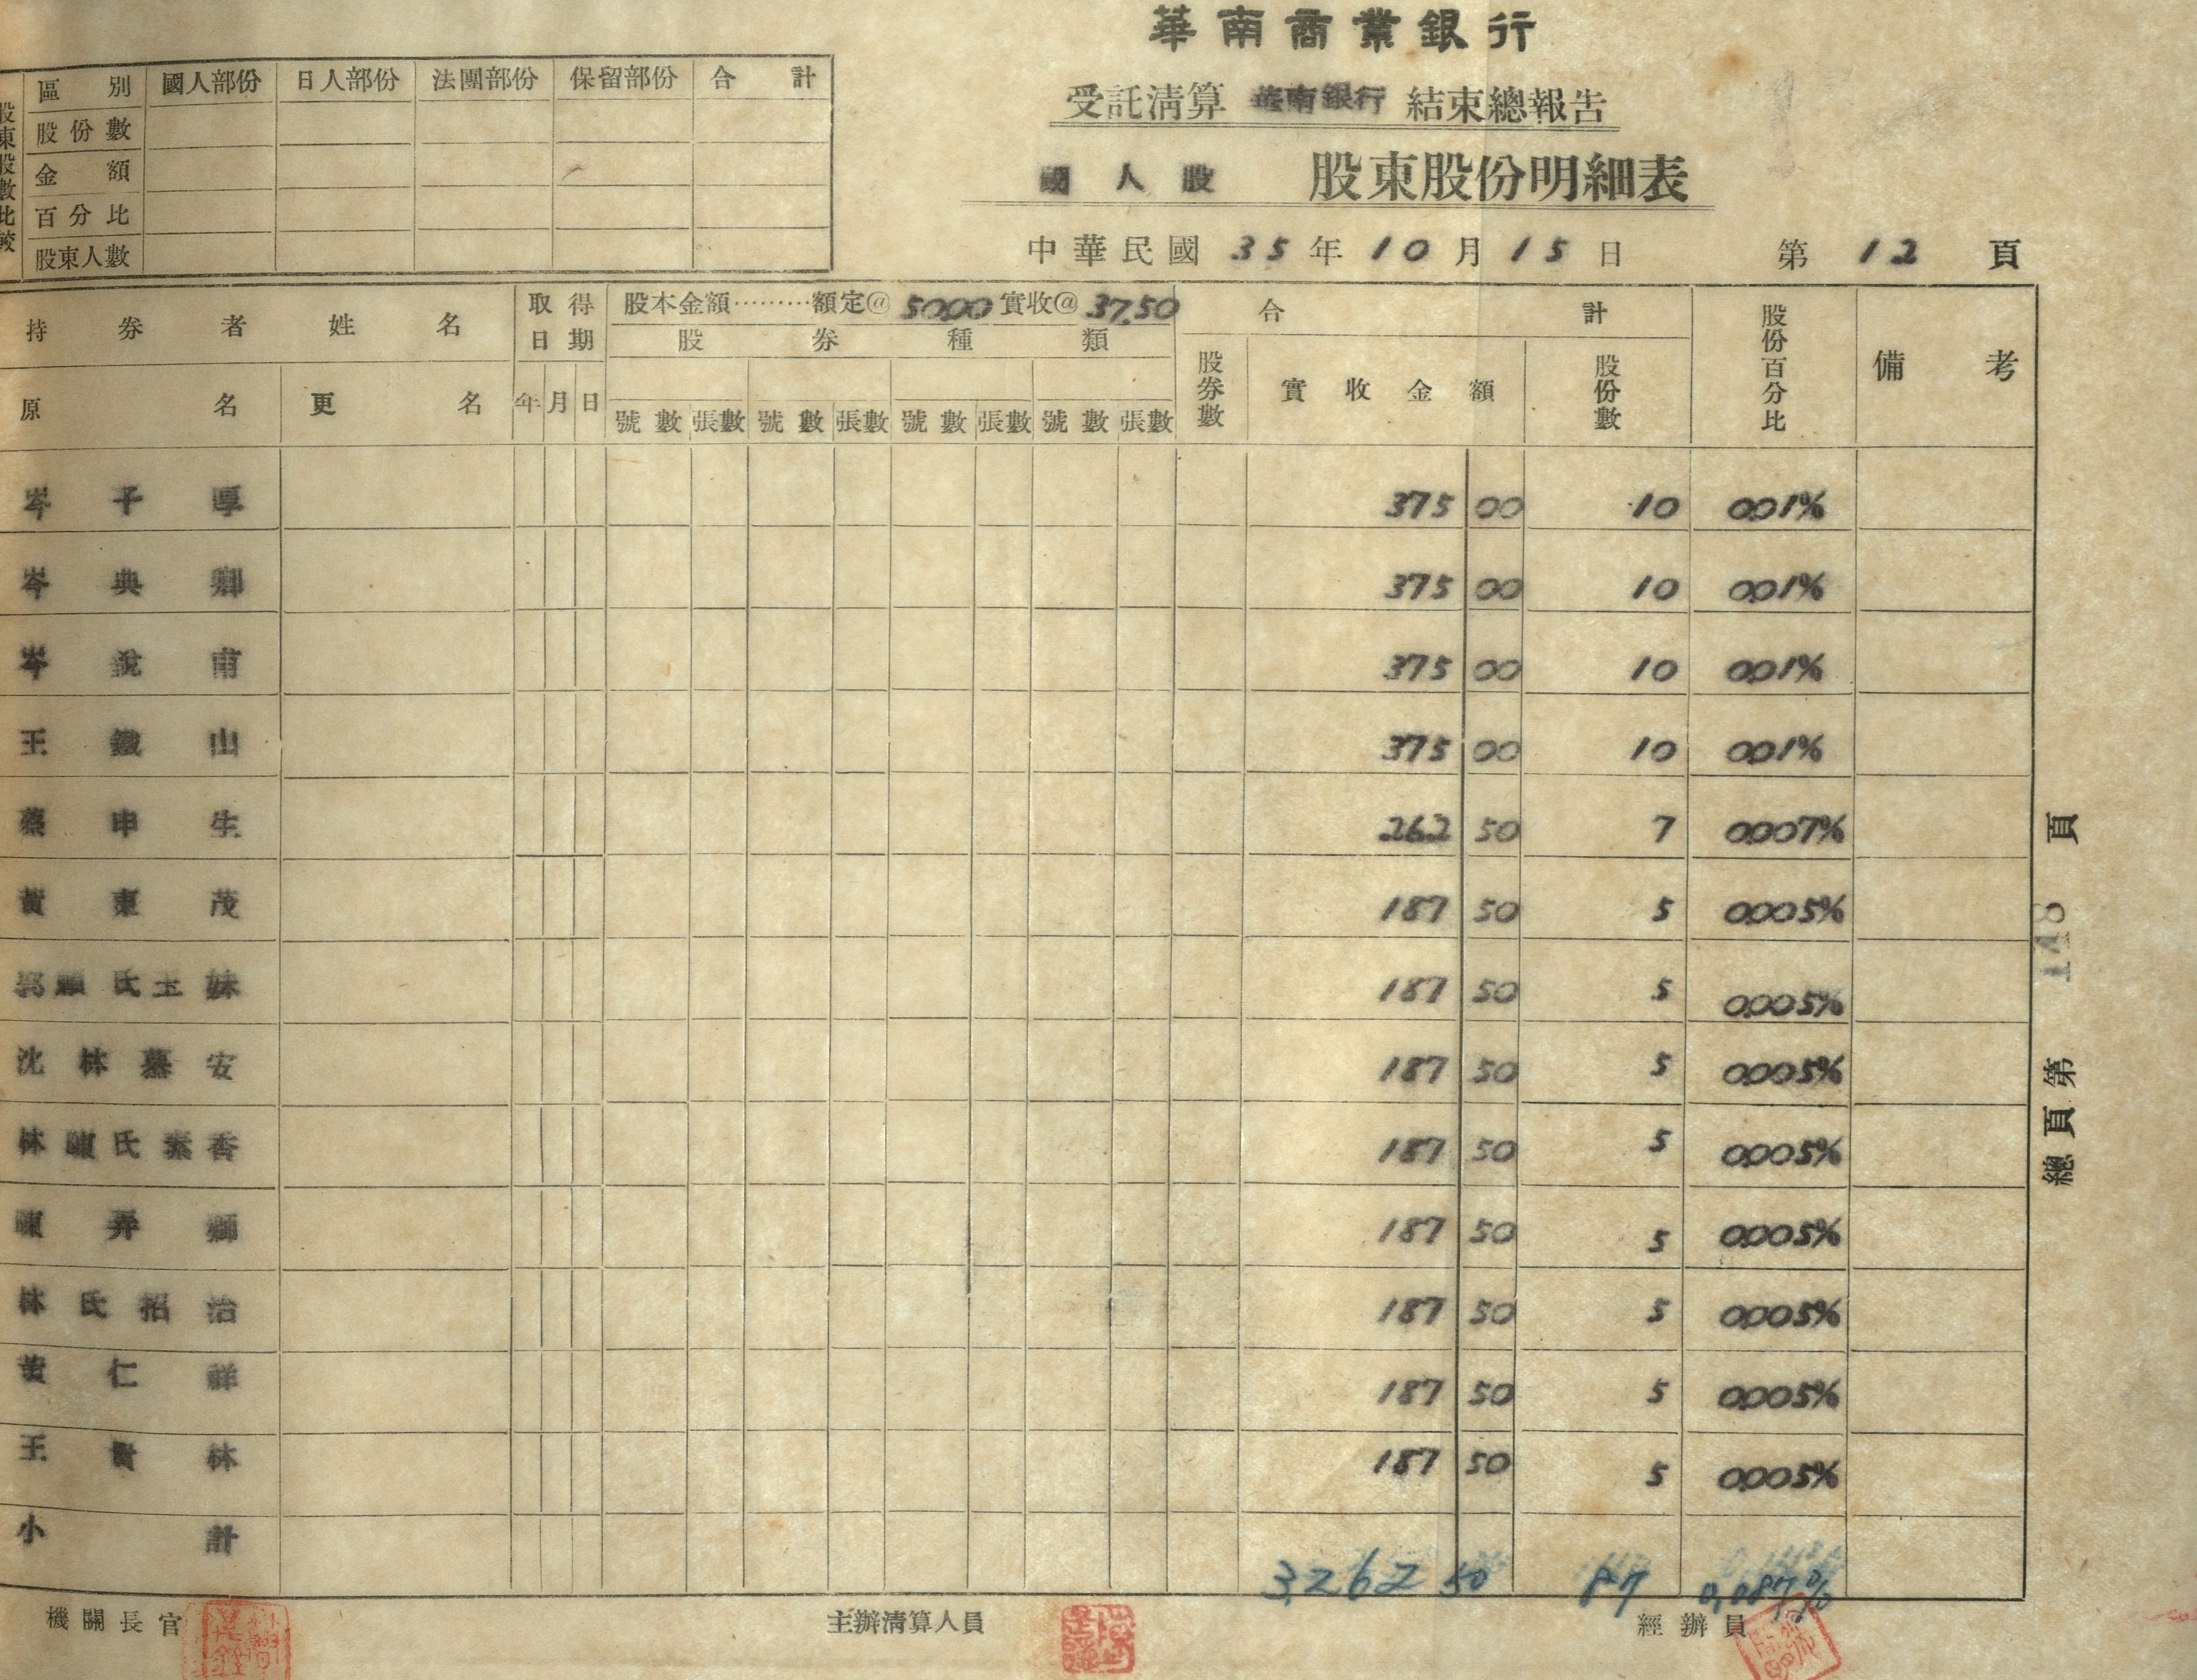 華南商業銀行
受託清算 華南銀行 結束總報告
國人股 股東股份明細表
中華民國 35 年 10 月 15 日 第 12 頁
股東股數比較
區別 國人部份 日人部份 法團部份 保留部份 合計
股份數
金額
百分比
股東人數
持券者姓名 取得日期 股本金額………額定@ 50.00 實收@ 37.50 合計 股份百分比 備考
股券種類
原名 更名 年 月 日 號數 張數 號數 張數 號數 張數 號數 張數 股券數 實收金額 股份數
岑子厚 375 00 10 0.01%
岑典卿 375 00 10 0.01%
岑說甫 375 00 10 0.01%
王鐵山 375 00 10 0.01%
蔡申生 262 50 7 0.007%
黃東茂 187 50 5 0.005%
郭賴氏玉妹 187 50 5 0.005%
沈林慕安 187 50 5 0.005%
林陳氏素香 187 50 5 0.005%
陳弄獅 187 50 5 0.005%
林氏招治 187 50 5 0.005%
黃仁祥 187 50 5 0.005%
王貴林 187 50 5 0.005%
小計 3,262 50 87 0.087%
機關長官 主辦清算人員 經辦員
總頁第 148 頁